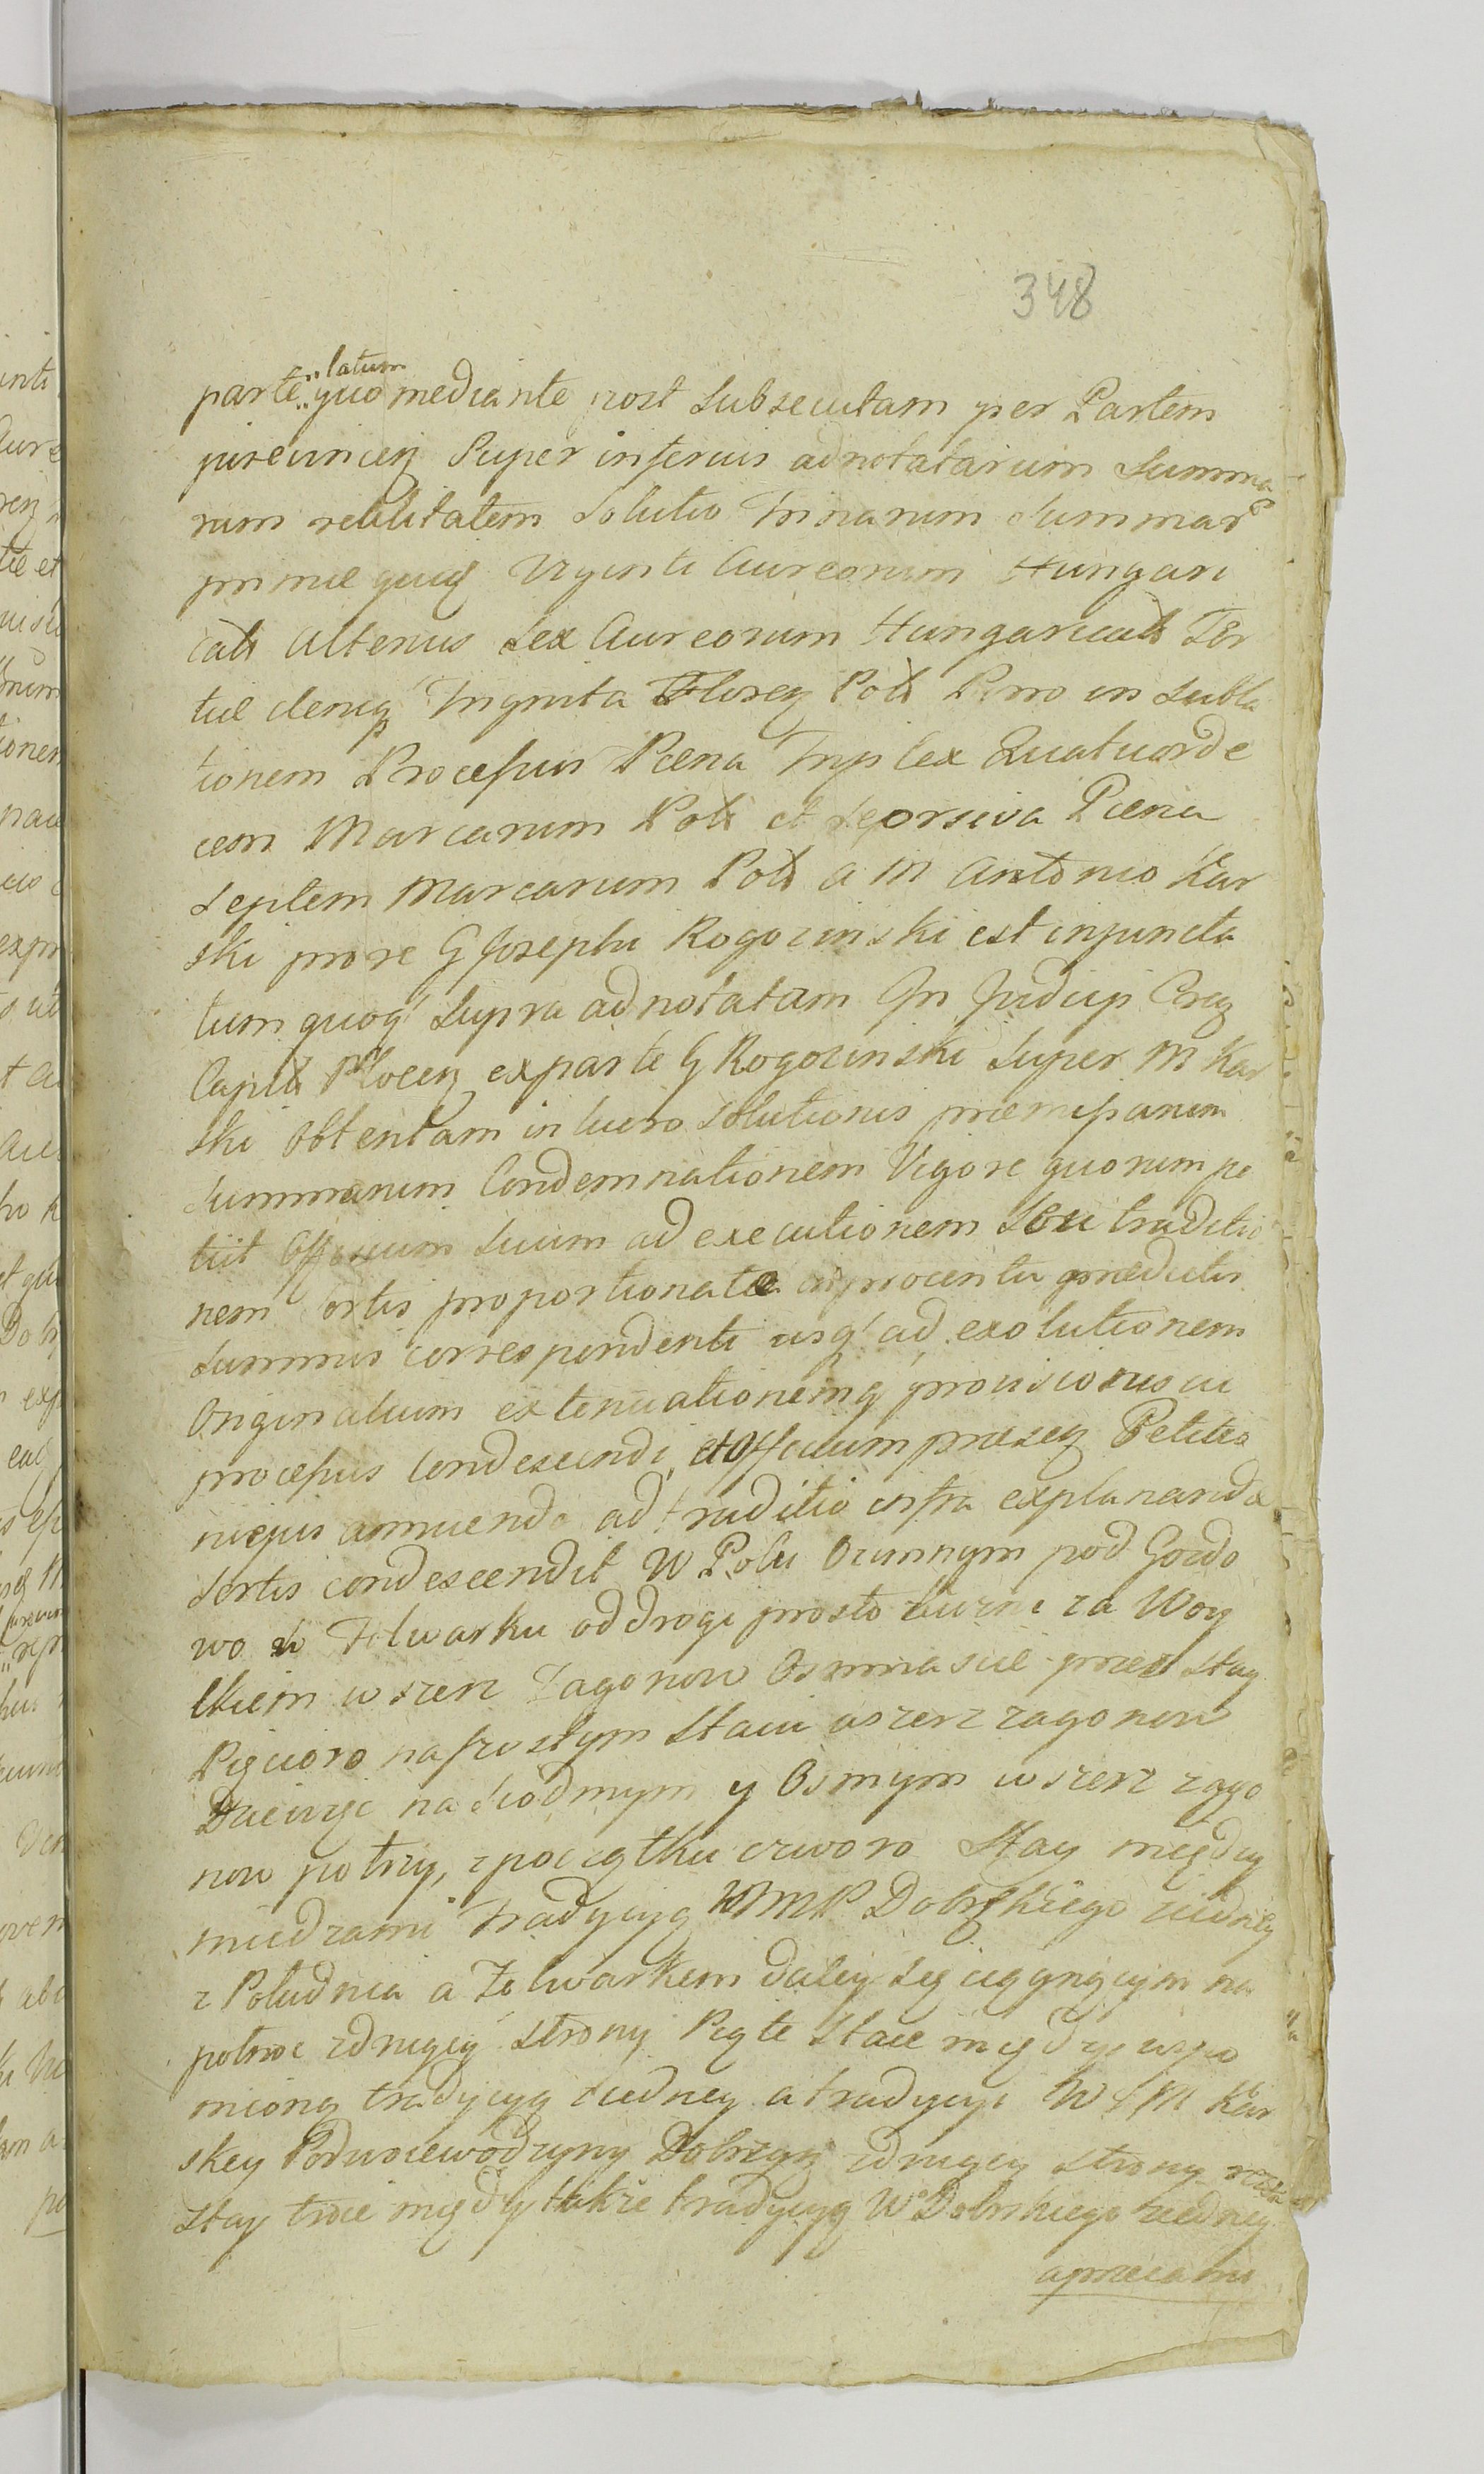 348
latum
parte quo mediante post subsecutam per Partem
jurevincen Super inferius adnotatarum Summa
rum realitatem Solutio Trinarum Summar
primae quidem Viginti Aureorum Hungari
calium alterius Sex Aureorum Hungaricalium Ter
tiae denique Triginta Floren Pol Porro in subla
tionem Processus Paena Triplex Quatuorde
cem Marcarum Pol et Seorsiva Paena
Septem Marcarum Pol a M Antonio Kar
ski pro re G Josephi Rogozinski est injuncta
tum quoq supra adnotatam In Judicijs Cren
Capit Plocen ex parte G Rogozinski super M Kar
ski obtentam in lucro solutionis praemissarum
Summarum Condemnationem Vigore quorum pe
tiit Officium Suum ad executionem Seu traditio
nem sortis proportionatae a procentu praedictis
Summis correspondenti usq ad exolutionem
Originalium extenuationemq provisionis ac
processus condescendi, et Officium praesen Petitio
ni ejus annuendo ad traditio infra explanandae
Sortis condescendit W Polu Ozimnym pod Gozdo
wo w Folwarku od drogi prosto za Woy
tkiem wszerz Zagonow Osmnascie przez Stay
Pięcioro na szostym Staiu wszerz zagonow
Dziewięć na siodmym y Osmym wszerz zago
now po trzy, z początku czworo Stay między
miedzami Tradycyą WJMP Dobrskiego ziedney
z Południa a Folwarkem daley się ciągnącym na
połnoc zdrugiey Strony Piąte Staie między wspo
mnioną tradycyą ziedney a tradycyi W JM Kar
skey Podwoiewodzyny Dobrzyn zdrugiey Strony
Stay troie między także tradycyą W Dobrskiego ziedney
a prze